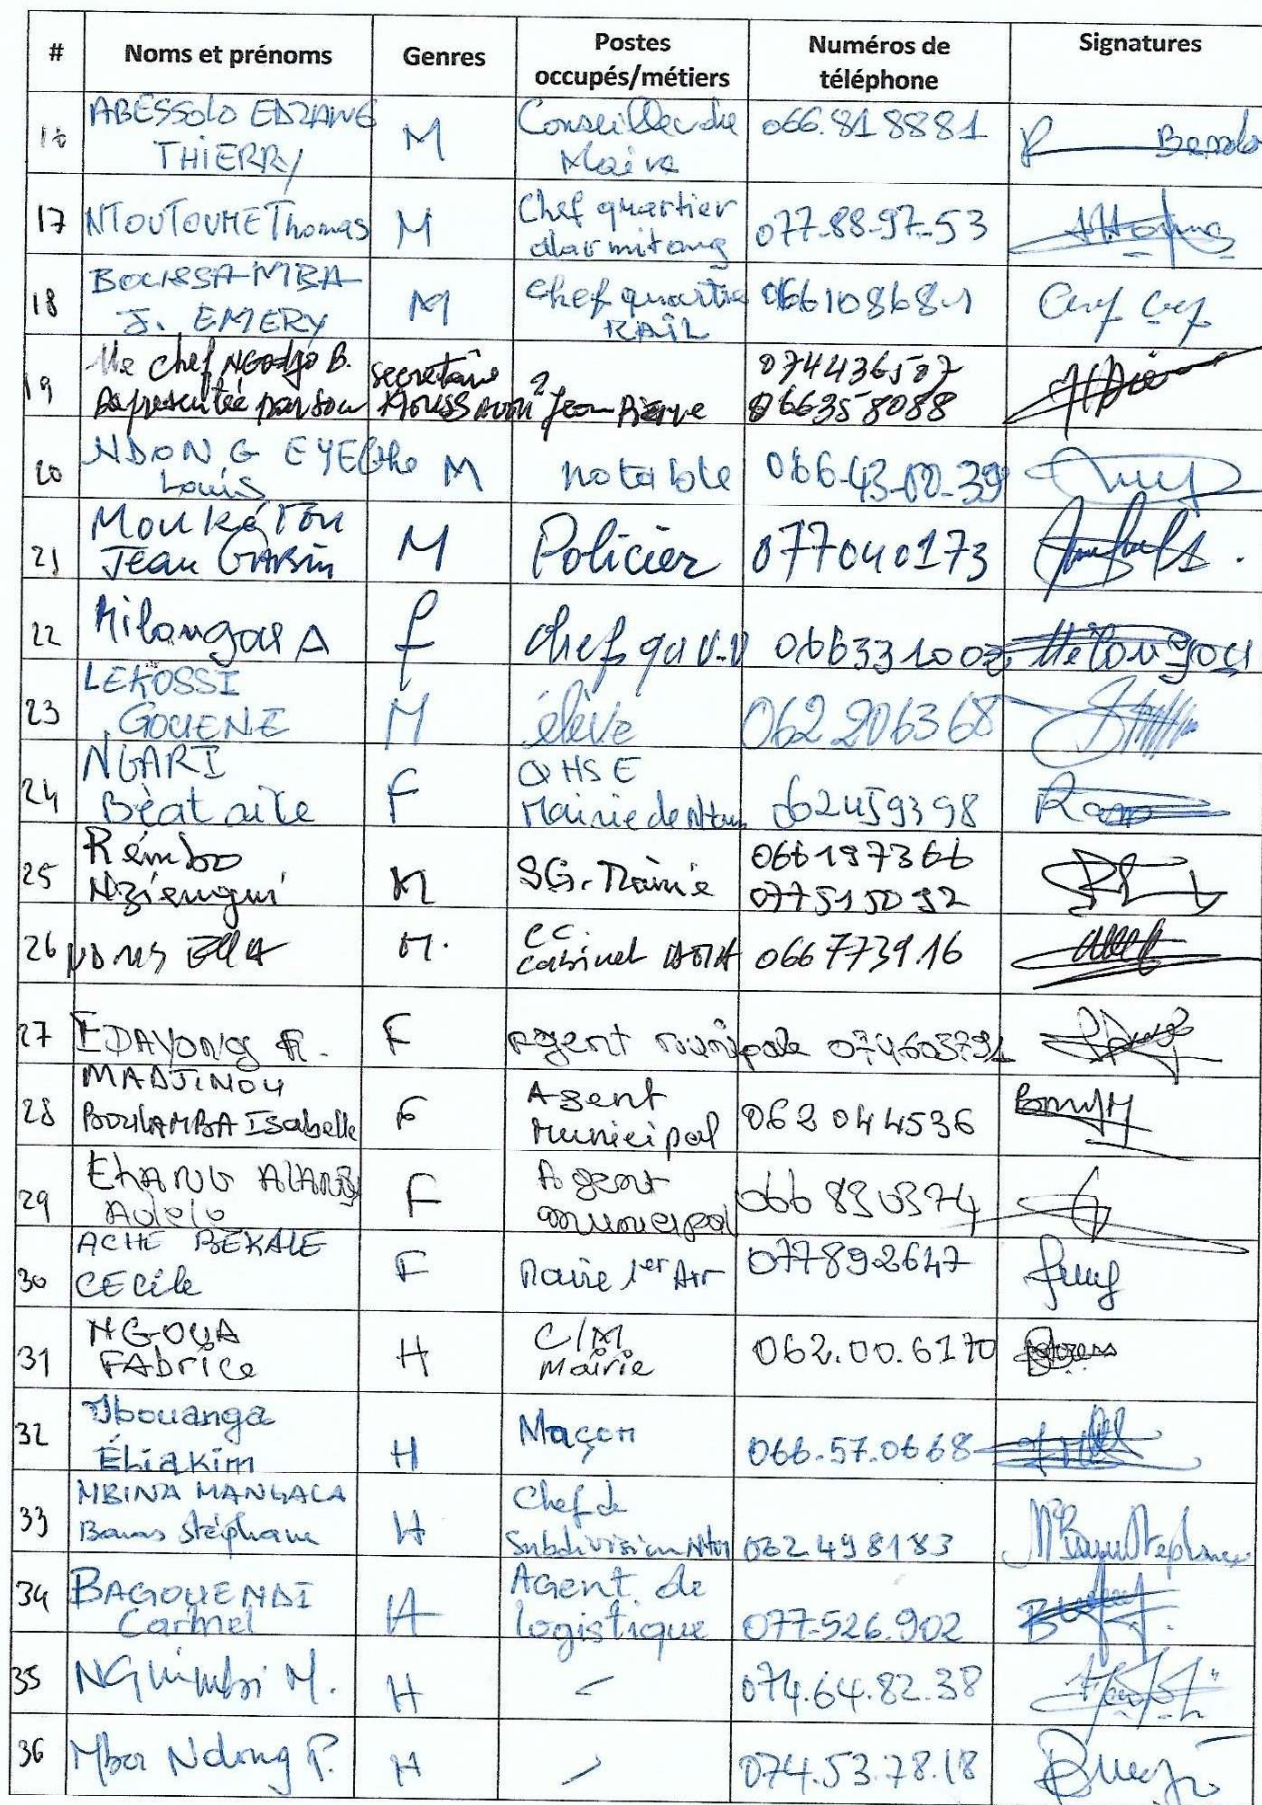 # Noms et prénoms Genres Postes occupés/métiers Numéros de téléphone Signatures
16 ABESSOLO EDZANG THIERRY M Conseiller du Maire 066.81 8881
17 NTOUTOUME Thomas M Chef quartier 077-88-97-53
18 BOUSSA-MBA J. EMERY M Chef quartier RAIL 06610868-1
19 Me Chef NGodjo B. Représentée par son secrétaire Jean Pierre 074436507 066358088
20 NDONG EYEGhe Louis M notable 066-43-00-39
21 MoukéTou Jean GABin M Policier 077040173
22 Milangou A f chef qu
23 LEKOSSI GOUENE M élève 062 206368
24 NGARI Béat F QHSE Mairie de Ntoum 062459398
25 Rembo Nziengui M SG. Mairie 066197366 077515092
26 ELLA M. CC. Cabinet 066773916
27 EDAYONG R. F Agent municipale 074603791
28 MADJINOU BOULAMBA Isabelle F Agent Municipal 062044536
29 F Agent municipal 066830374
30 ACHE BEKALE CECile F Mairie 1er Arr 077892647
31 NGOUA FAbrice H C/M Mairie 062.00.6170
32 Ibouanga Éliakim H Maçon 066.57.0668
33 MBINA MANGALA Stéphane H Chef de Subdivision Ntoum 062498183
34 BAGOUENDI Carmel H Agent de logistique 077-526.902
35 NGuimbi M. H - 074.64.82.38
36 Mba Ndong P. H - 074.53.78.18